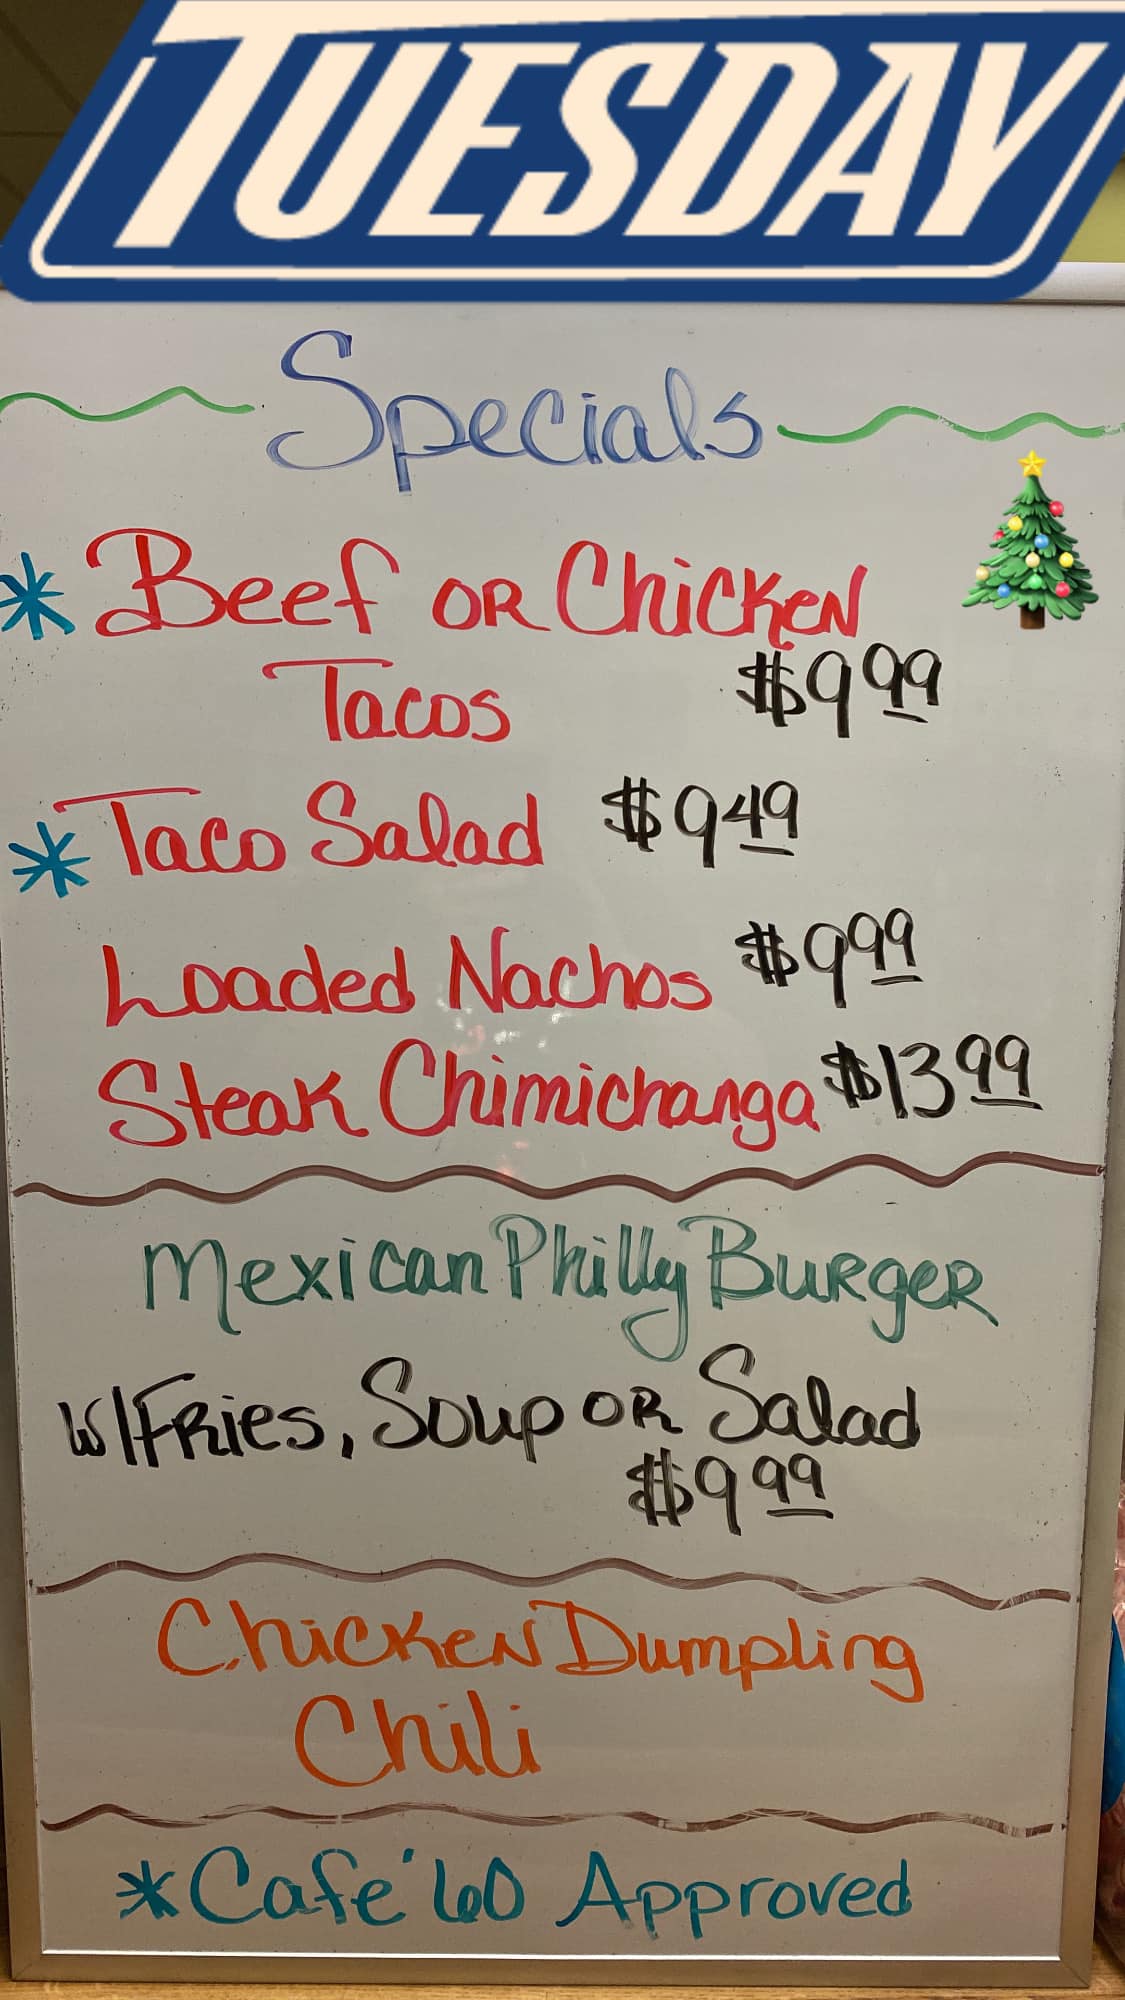 TUESDAY
Specials
* Beef OR Chicken
Tacos $9 99
* Taco Salad $9 49
Loaded Nachos $9 99
Steak Chimichanga $13 99
Mexican Philly Burger
w/Fries, Soup OR Salad
$9 99
Chicken Dumpling
Chili
* Café 60 Approved